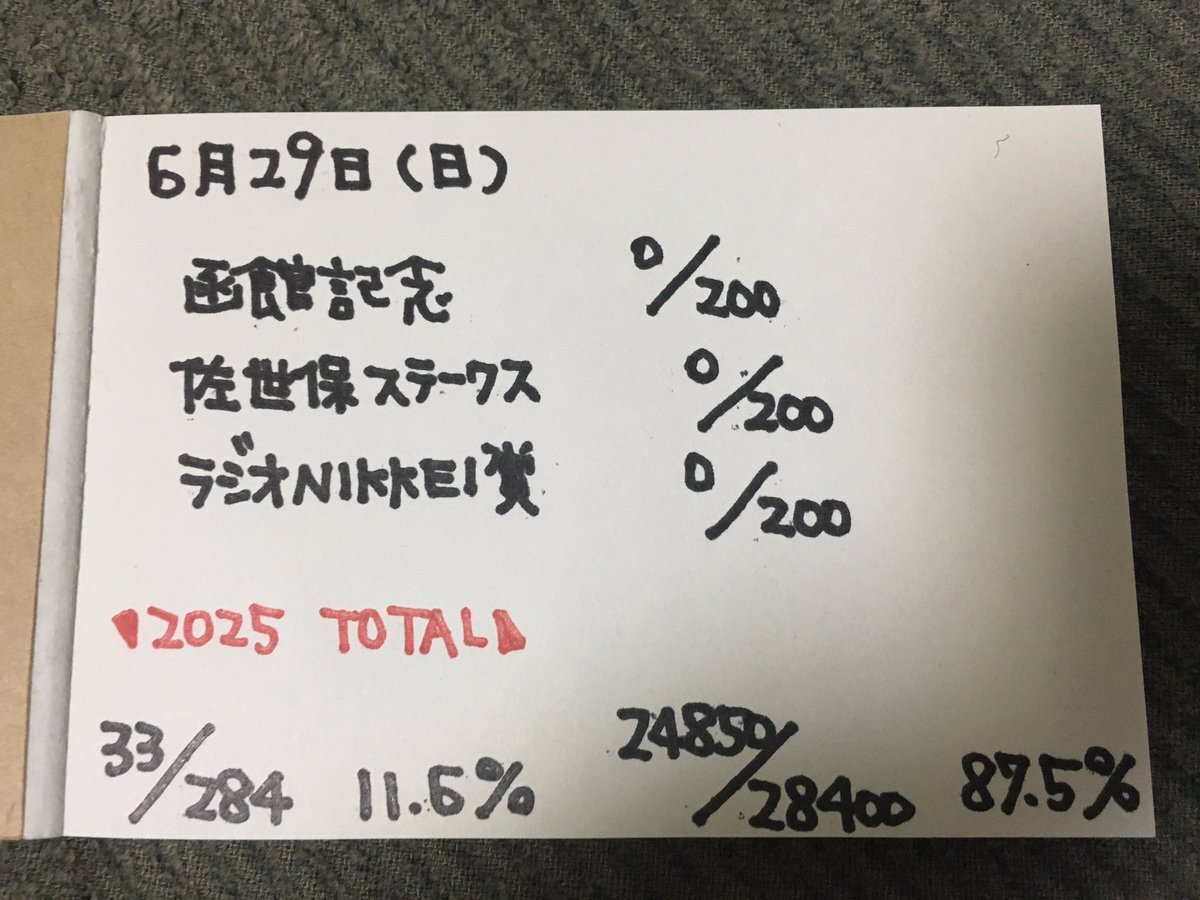 6月29日(日)
函館記念 0/200
佐世保ステークス 0/200
ラジオNIKKEI賞 0/200
2025 TOTAL
33/284 11.6% 24850/28400 87.5%